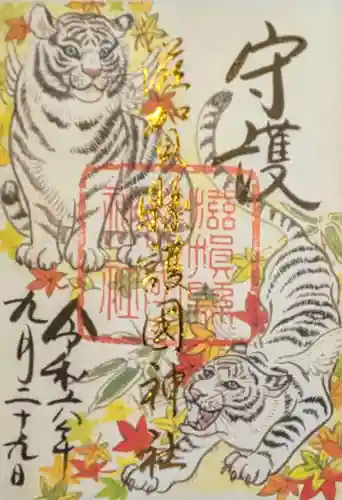 守護
滋賀縣護國神社
滋賀縣
護國
神社
令和六年
九月二十九日